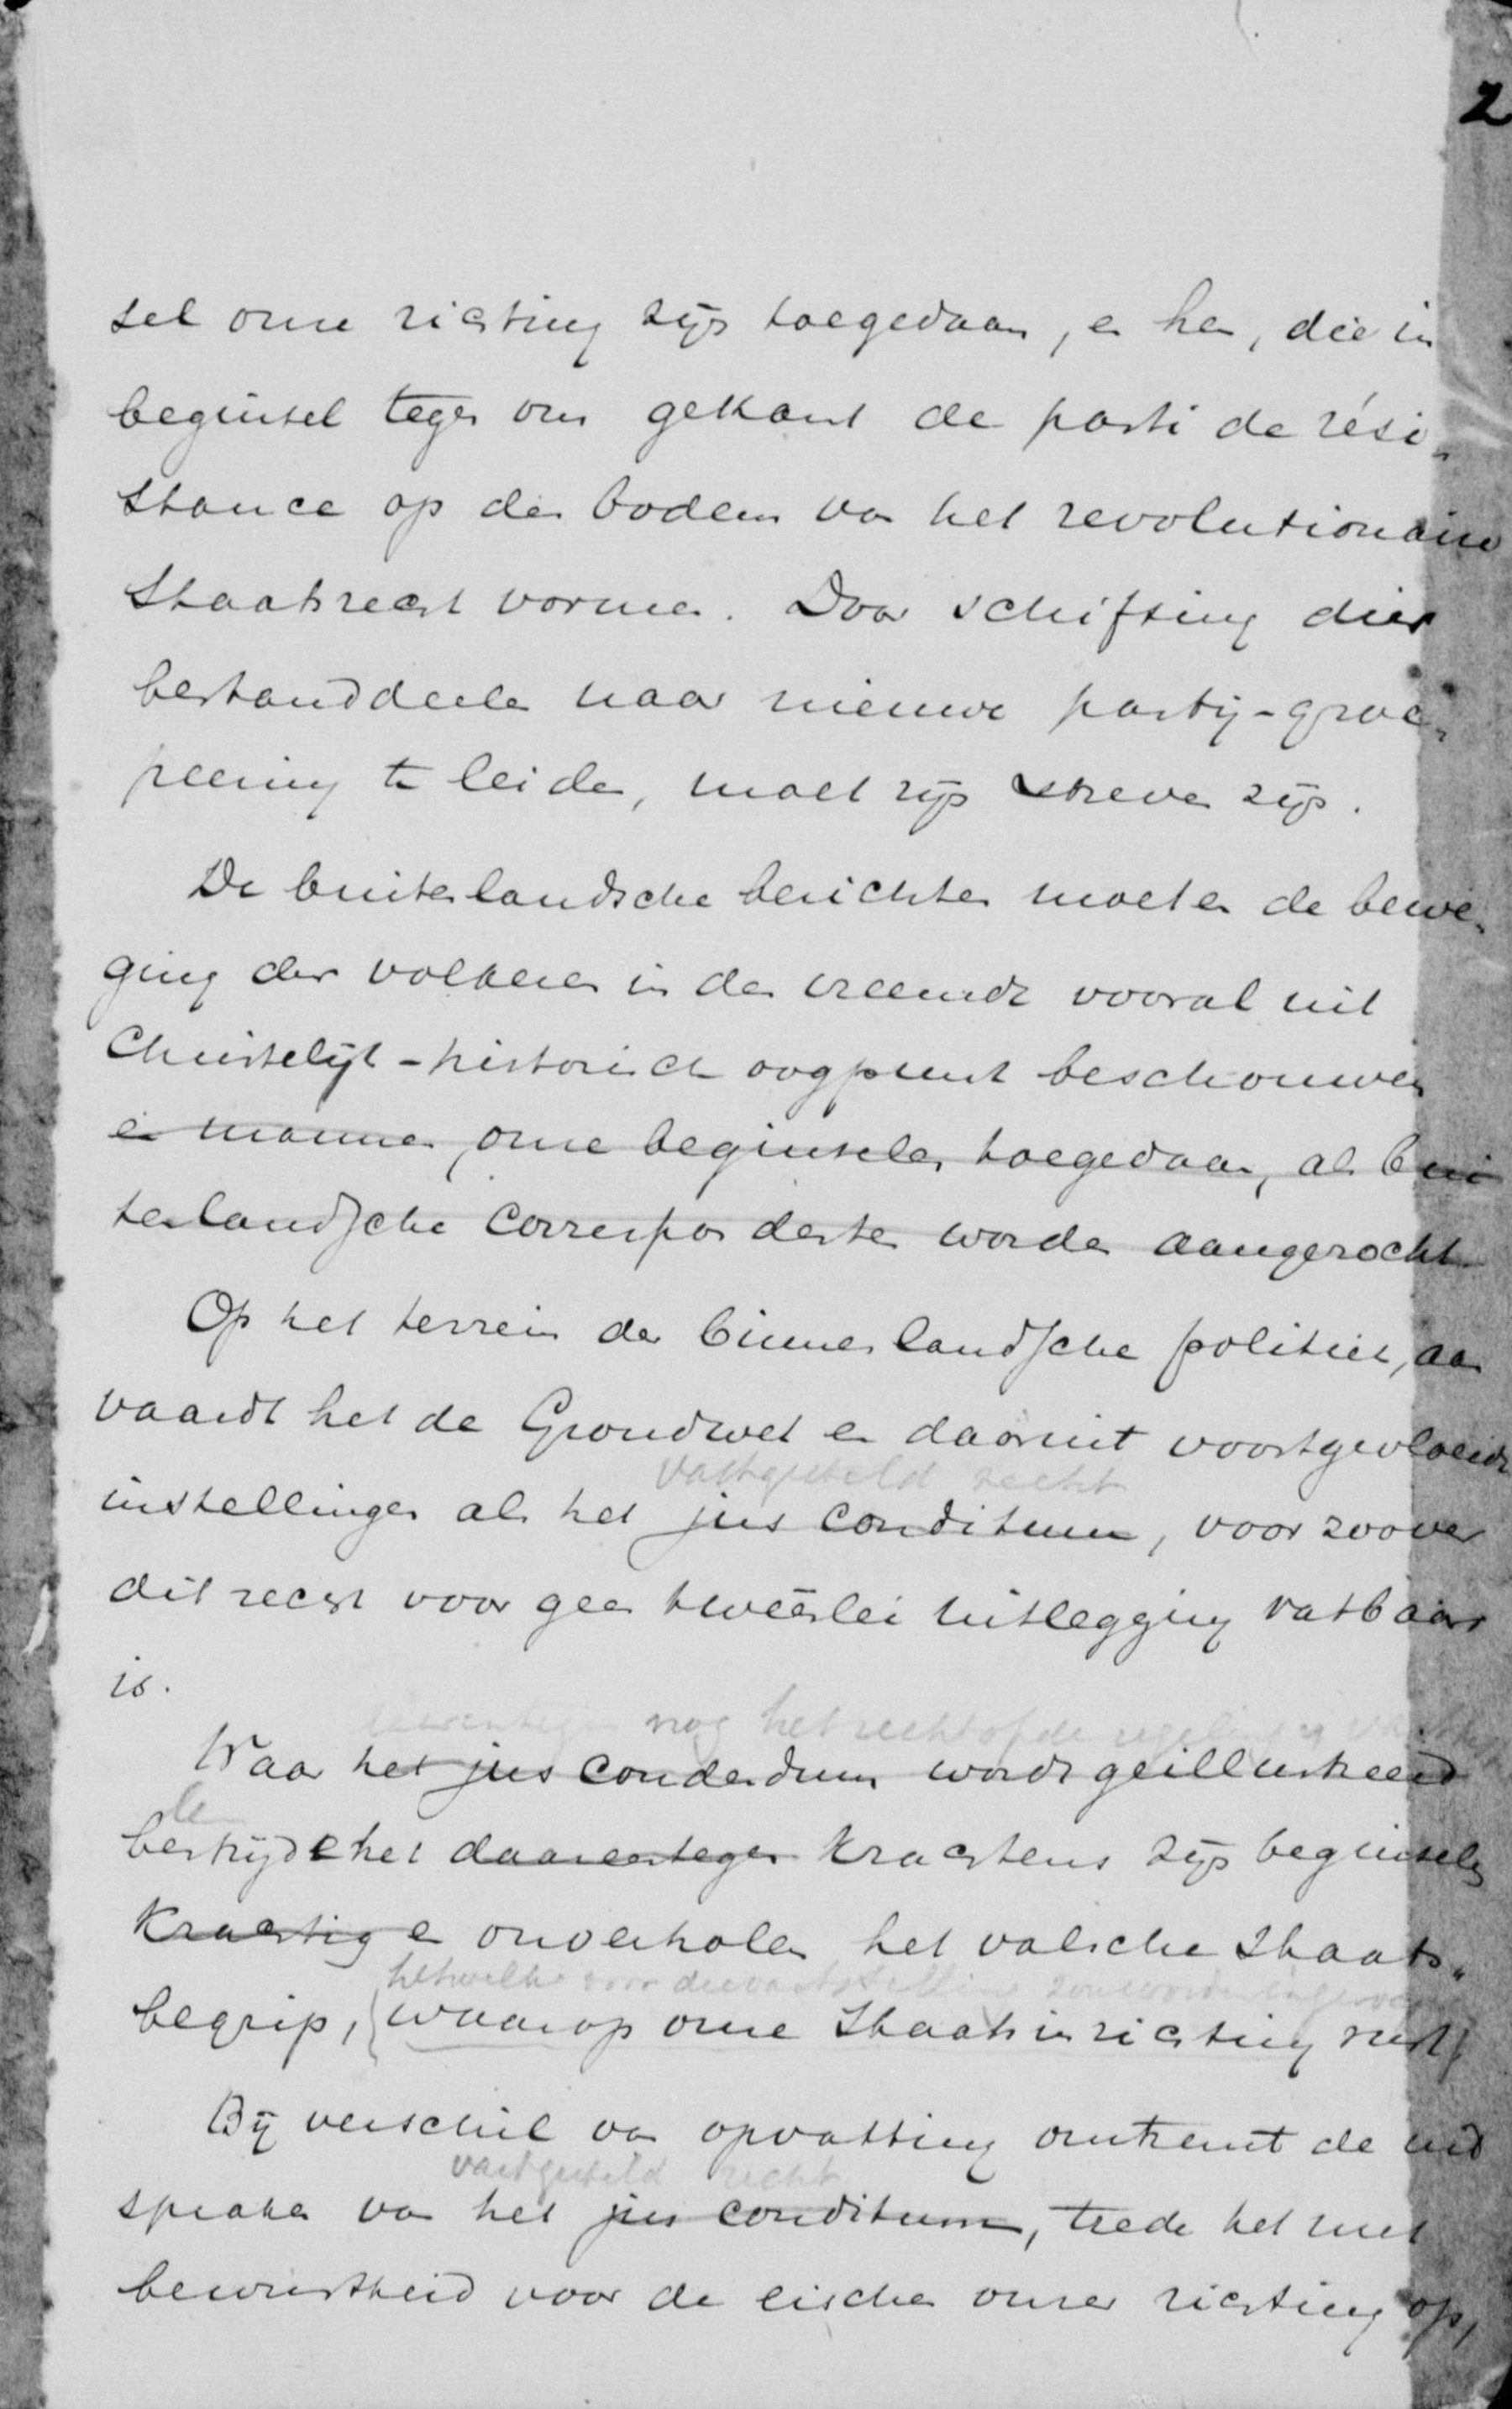 2
sel onze rigting zijn toegedaan, en hen, die in
beginsel tegen ons gekant de parti de rési-
stance op den bodem van het revolutionaire
Staatsregt vormen. Door schifting dier
bestanddeelen naar nieuwe partij-groe-
peering te leiden, moet zijn streven zijn.
De buitenlandsche berichten moeten de bewe-
ging der volkeren in den vreemde vooral uit
Christelijk-historisch oogpunt beschouwen
en mannen, onze beginselen toegedaan, als bui
tenlandsche correspondenten worden aangezocht.
Op het terrein der binnenlandsche politiek, aan
vaardt het de Grondwet en daaruit voortgevloeide
vastgesteld recht
instellingen als het jus conditum, voor zoover
dit regt voor geen tweeërlei uitlegging vatbaar
is.
daarentegen nog het recht of de regeling
Waar het jus condendum wordt geillustreerd
le
bestrijde het daarentegen krachtens zijn beginselen
Krachtig en onverholen het valsche Staats-
hetwelk voor die vaststelling zou worden
begrip, waarop onze Staatsinrigting rust
Bij verschil van opvatting omtrent de uit
vastgesteld recht
spraken van het jus conditum, trede het met
bewustheid voor de eischen onzer rigting op,